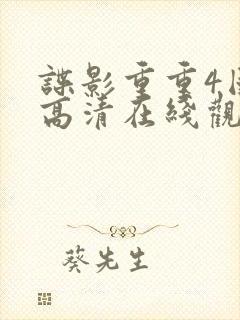 諜影重重4
高清在綫觀
葵先生